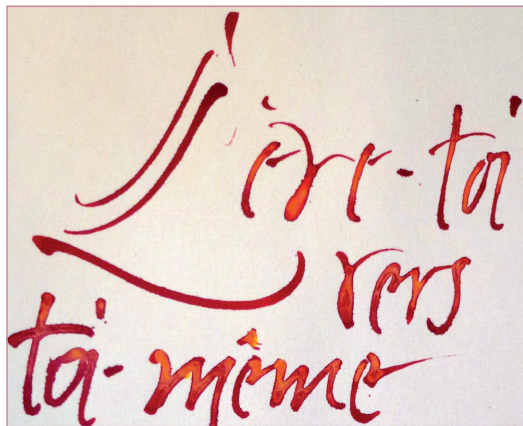 Lève-toi
vers
toi-même